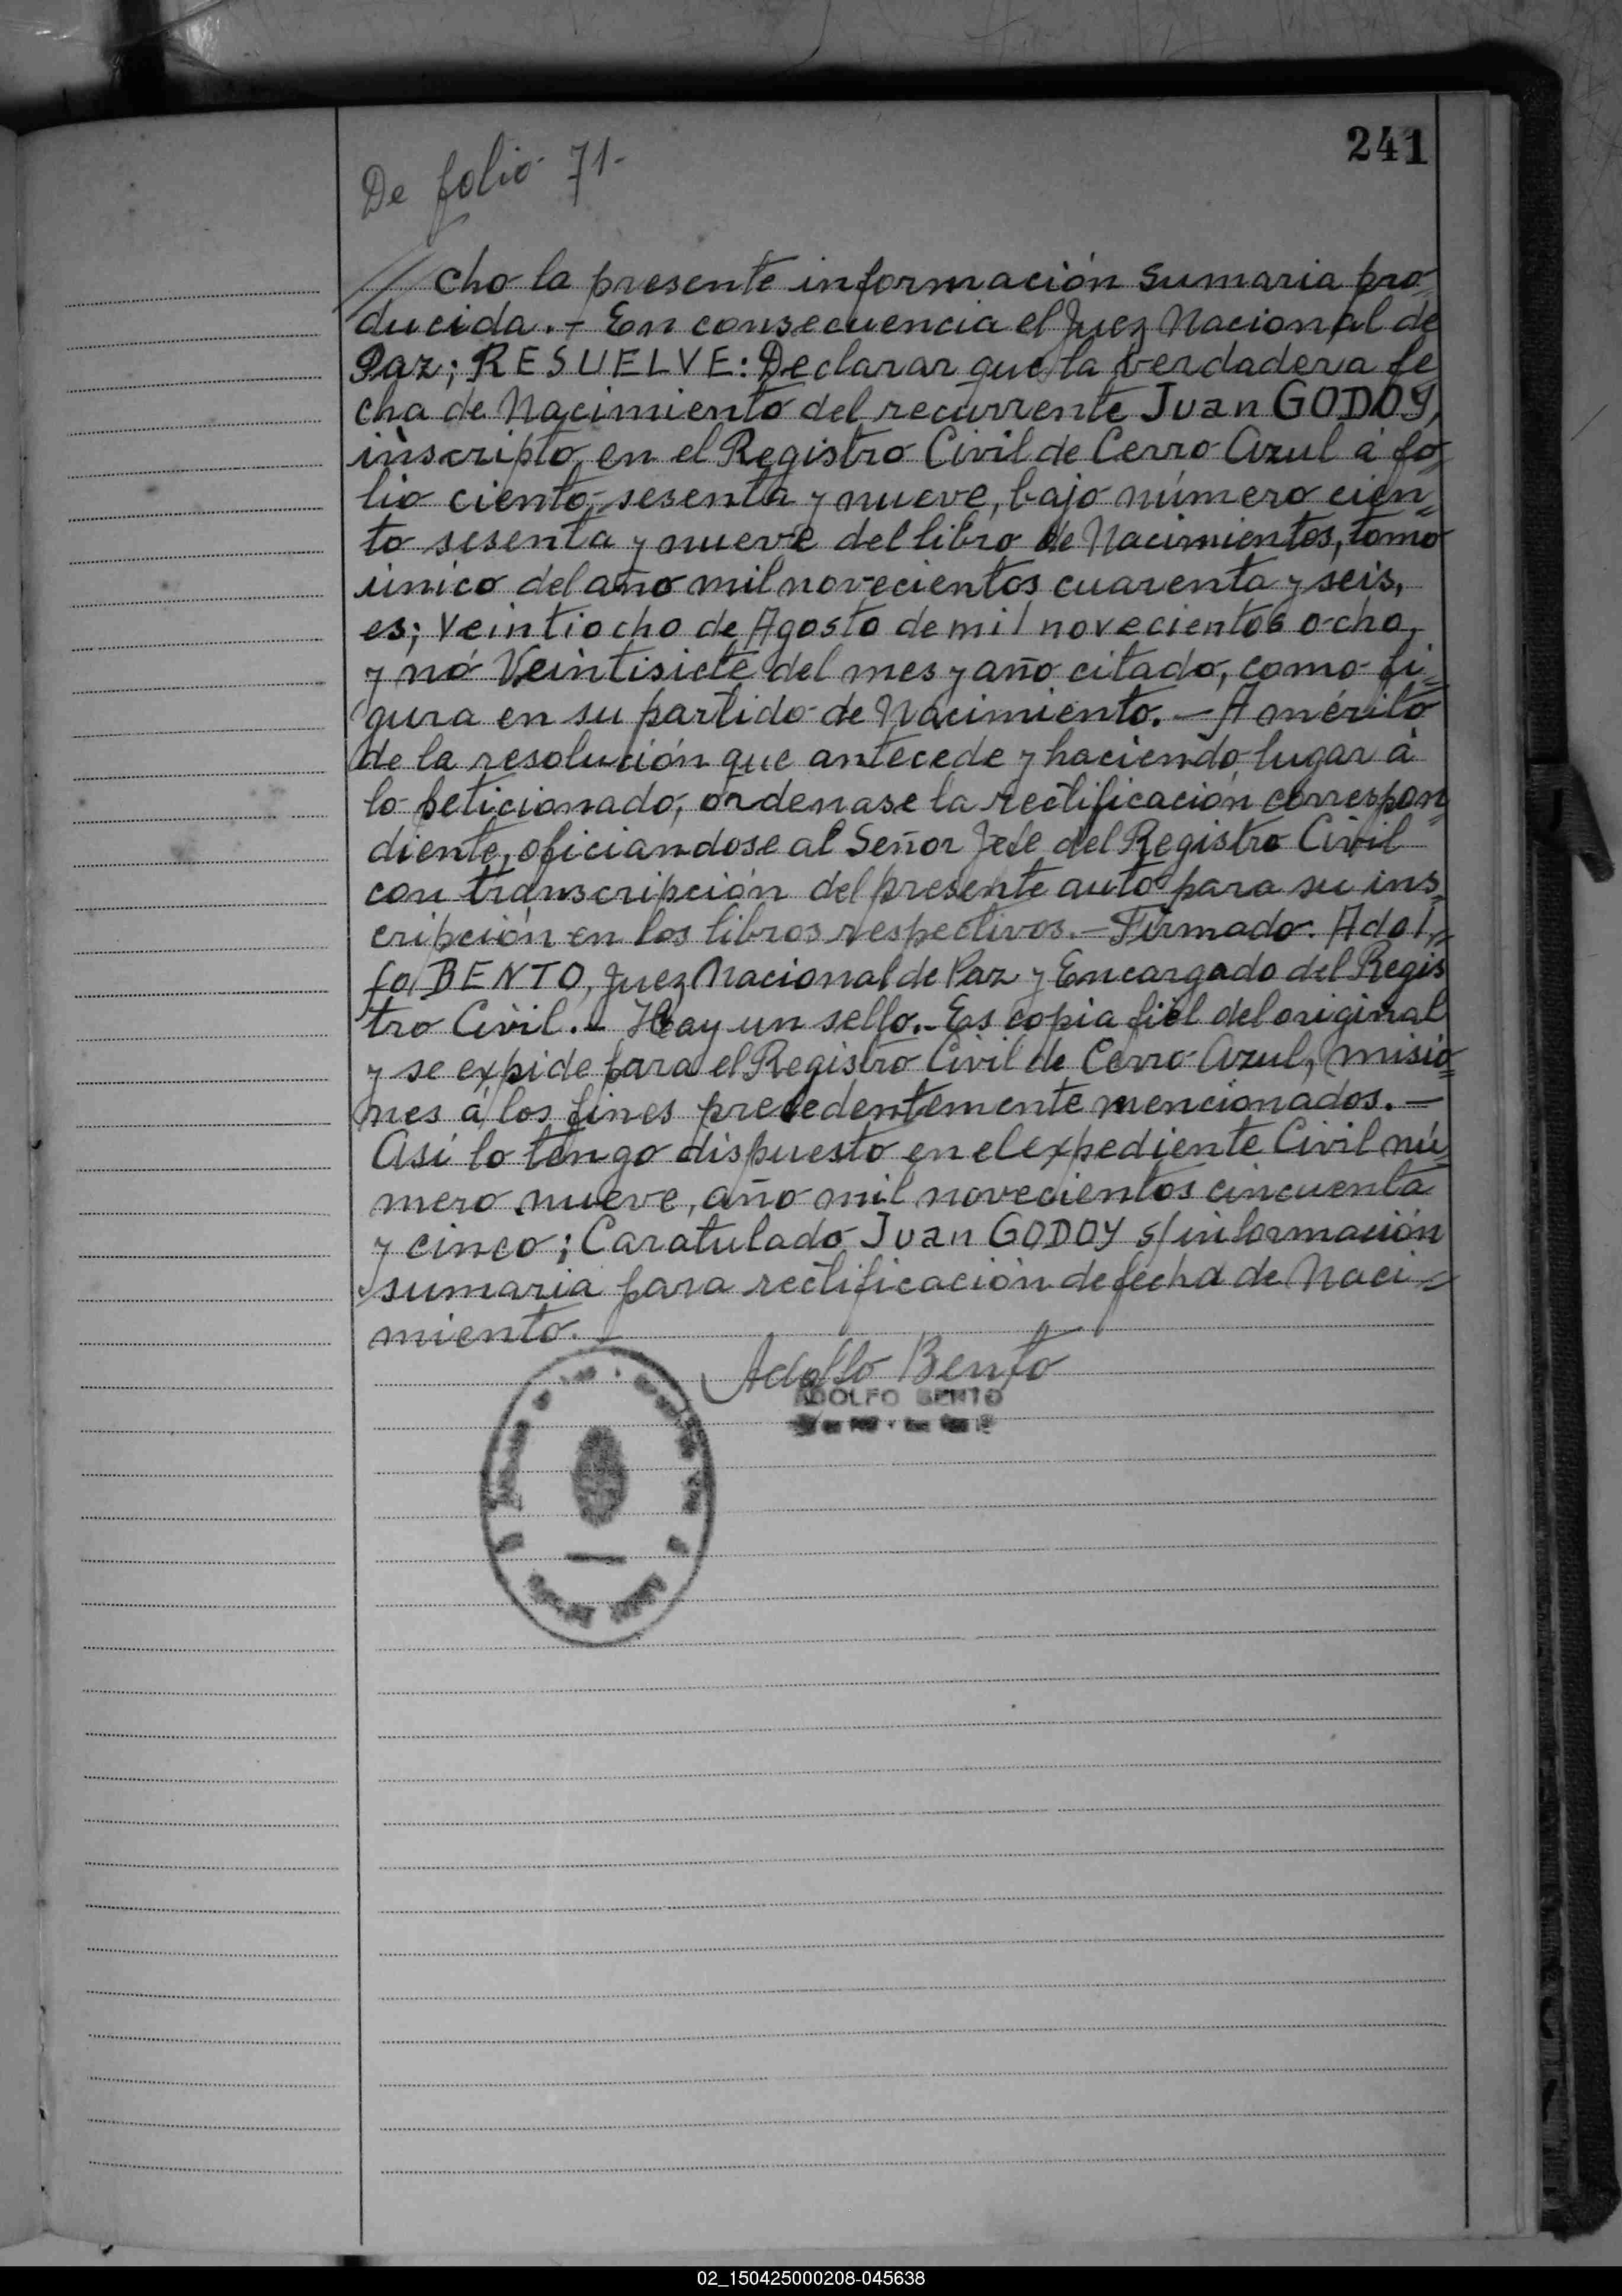 241
De folio 71-
// cho la presente información sumaria pro-
ducida.- En consecuencia el Juez Nacional de
Paz; RESUELVE: Declarar que la verdadera fe
cha de Nacimiento del recurrente Juan GODOY,
inscripto en el Registro Civil de Cerro Azul á fo-
lio ciento sesenta y nueve, bajo número cien=
to sesenta y nueve del libro de Nacimientos, tomo
único del año mil novecientos cuarenta y seis,
es; Veintiocho de Agosto de mil novecientos ocho,
y nó Veintisiete del mes y año citado, como fi=
gura en su partido de Nacimiento.- A mérito
de la resolución que antecede y haciendo lugar á
lo peticionado, ordenase la rectificación correspon=
diente, oficiandose al Señor Jefe del Registro Civil
con transcripción del presente auto para su ins=
cripción en los libros respectivos.- Firmado. Adol=
fo BENTO, Juez Nacional de Paz y Encargado del Regis
tro Civil.- Hay un sello.- Es copia fiel del original
y se expide para el Registro Civil de Cerro Azul, Misio=
nes á los fines precedentemente mencionados.-
Así lo tengo dispuesto en el expediente Civil nú=
mero nueve, año mil novecientos cincuenta
y cinco; Caratulado Juan GODOY s/información
sumaria para rectificación de fecha de Naci=
miento.
Adolfo Bento
ADOLFO BENTO
02_150425000208-045638